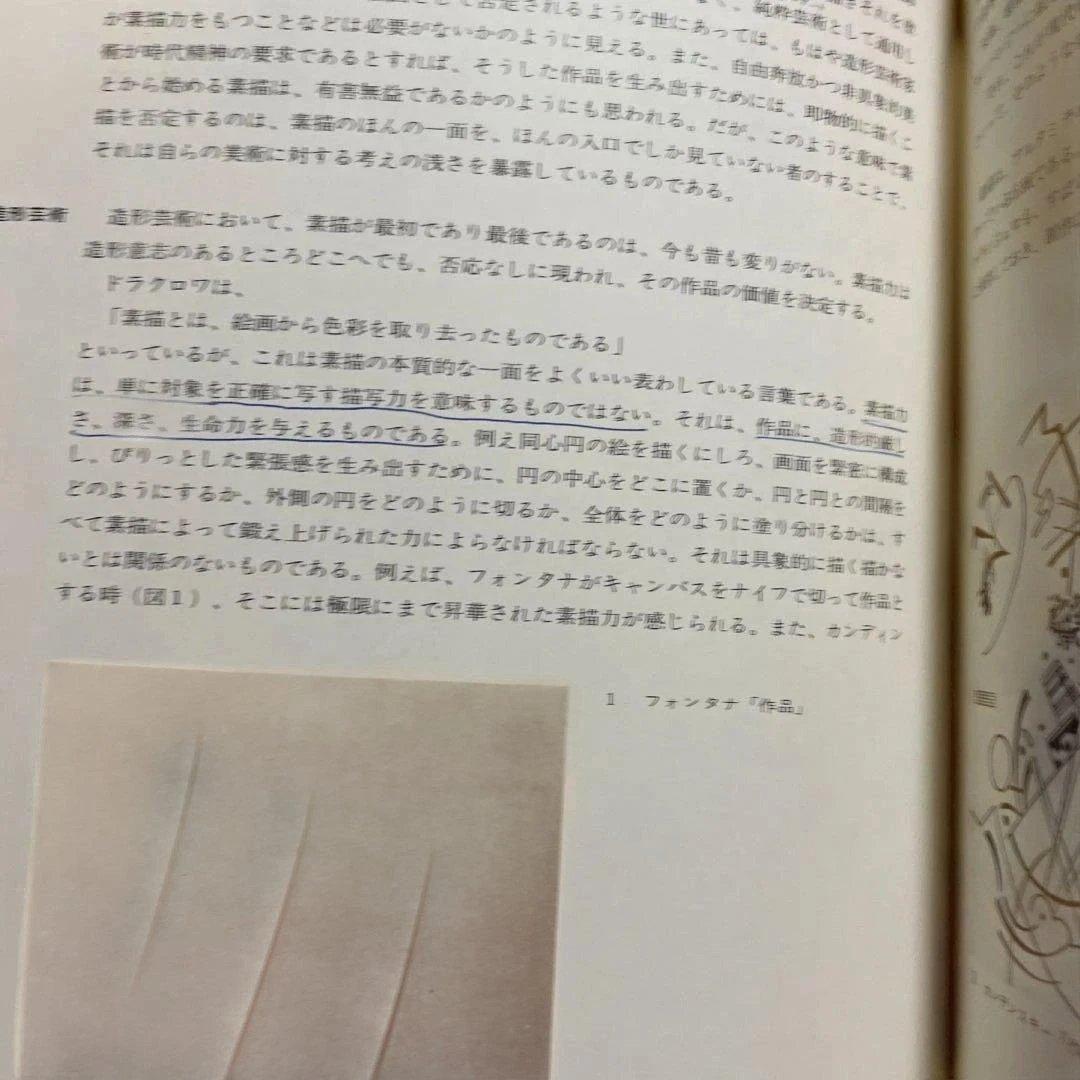 として否定されるような世にあっては、もはや造形芸術家
が素描力をもつことなどは必要がないかのように見える。また、自由奔放かつ非具象的美
術が時代精神の要求であるとすれば、そうした作品を生み出すためには、即物的に描くこ
とから始める素描は、有害無益であるかのようにも思われる。だが、このような意味で素
描を否定するのは、素描のほんの一面を、ほんの入口でしか見ていない者のすることで、
それは自らの美術に対する考えの浅さを暴露しているものである。
造形芸術
造形芸術において、素描が最初であり最後であるのは、今も昔も変りがない。素描力は
造形意志のあるところどこへでも、否応なしに現われ、その作品の価値を決定する。
ドラクロワは、
「素描とは、絵画から色彩を取り去ったものである」
といっているが、これは素描の本質的な一面をよくいい表わしている言葉である。素描力
は、単に対象を正確に写す描写力を意味するものではない。それは、作品に、造形的厳し
さ、深さ、生命力を与えるものである。例え同心円の絵を描くにしろ、画面を緊密に構成
し、ぴりっとした緊張感を生み出すために、円の中心をどこに置くか、円と円との間隔を
どのようにするか、外側の円をどのように切るか、全体をどのように塗り分けるかは、す
べて素描によって鍛え上げられた力によらなければならない。それは具象的に描く描かな
いとは関係のないものである。例えば、フォンタナがキャンバスをナイフで切って作品と
する時（図1）、そこには極限にまで昇華された素描力が感じられる。また、カンディン
1 フォンタナ「作品」